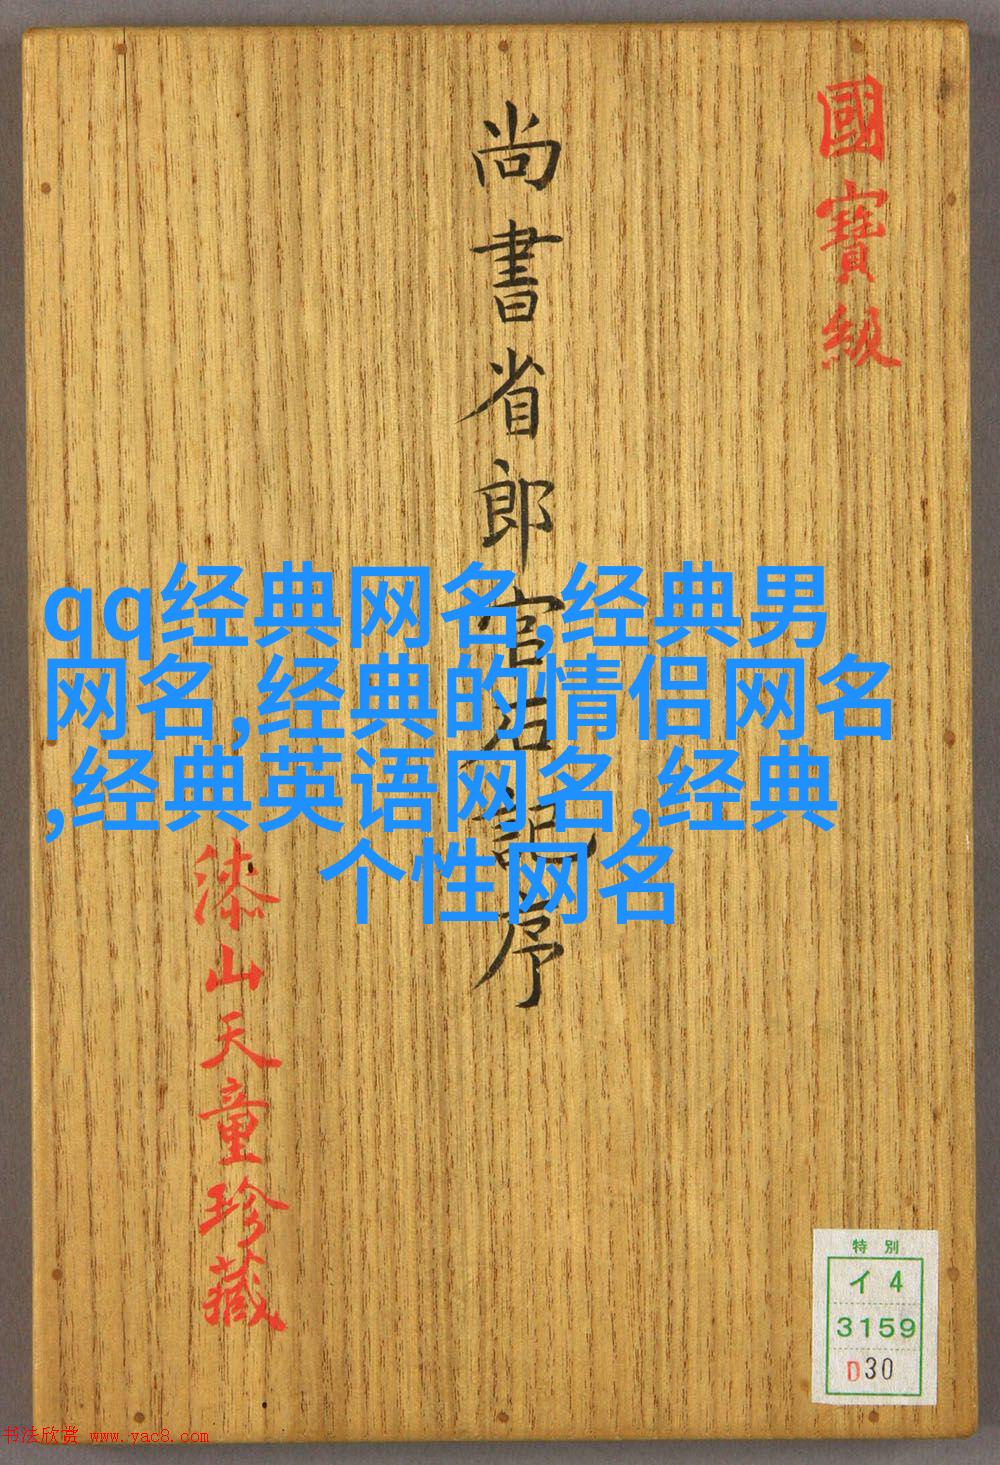 國寶級
尚書省郎官石記序
qq经典网名,经典男
网名,经典的情侣网名
,经典英语网名,经典
个性网名
漆山天童珍藏
特別
イ4
3159
D30
书法欣赏 www.yac8.com